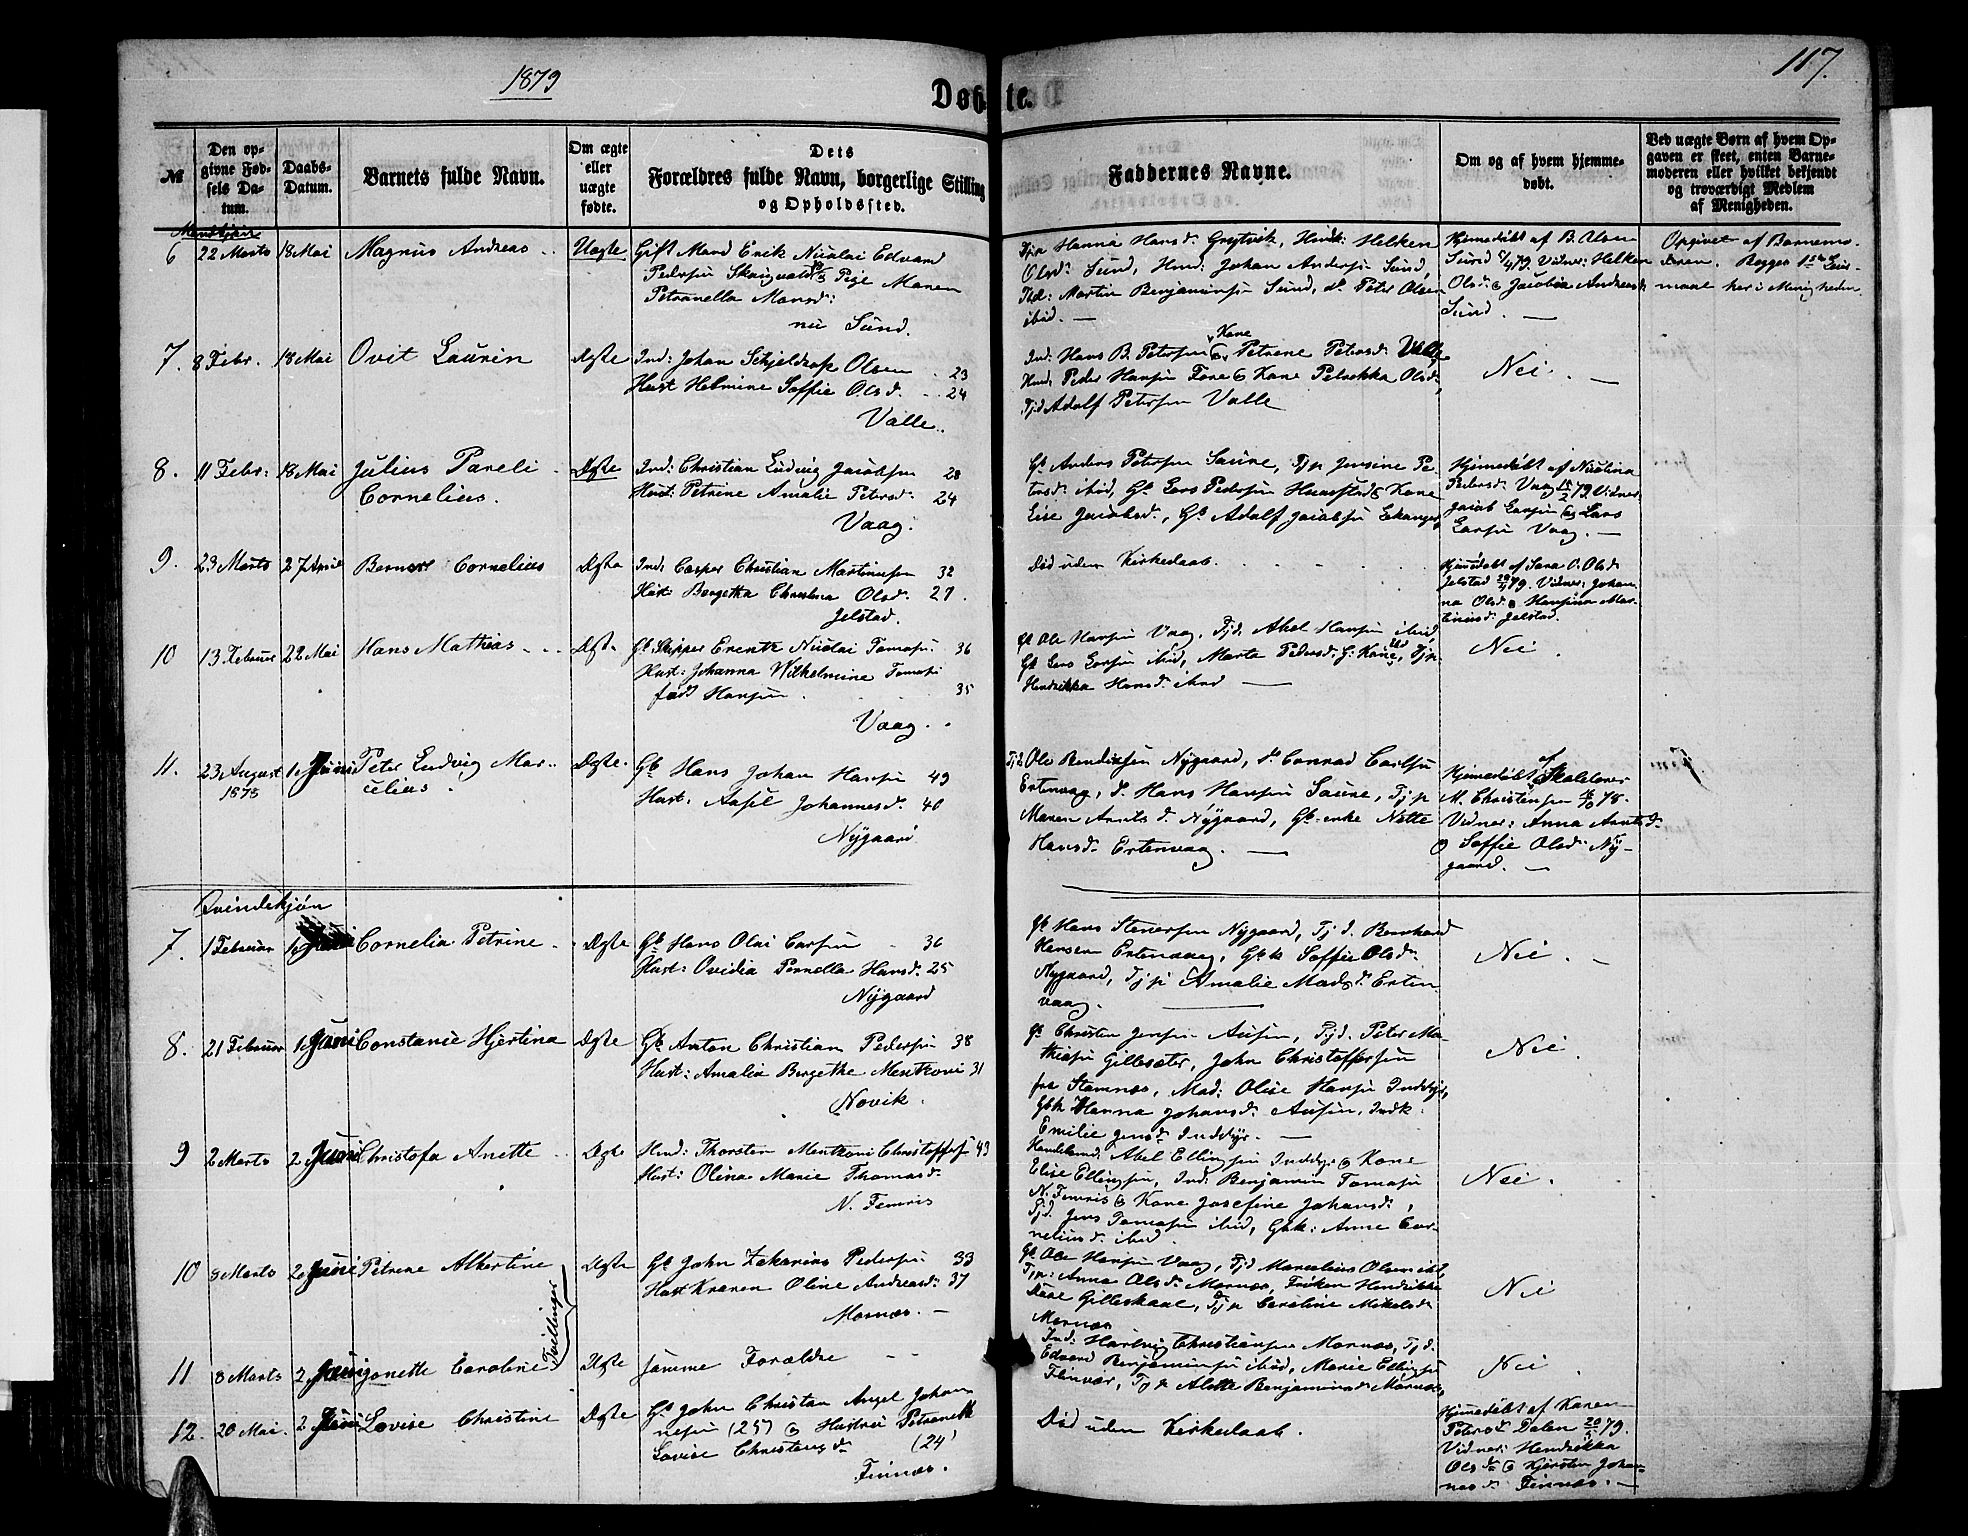 1879
117.
Døbte.
№
Den op-
givne Fød-
sels Da-
tum.
Daabs-
Datum.
Barnets fulde Navn.
Om ægte
eller
uægte
fødte.
Dets
Forældres fulde Navn, borgerlige Stilling
og Opholdssted.
Faddernes Navne.
Om og af hvem hjemme-
døbt.
Ved uægte Børn af hvem Op-
gaven er skeet, enten Barne-
moderen eller hvilket bekjendt
og troværdigt Medlem
af Menigheden.
Mandkjøn
6 22 Marts 18 Mai Magnus Andreas Uægte
Gift Mand Erik Nicolai Edvard
Pedersen Skaugvold & Pige Maren
Petranella Monsd:
nu Sund.
Tjp Hanna Hansd: Grytvik, Helken
Olsd: Sund, Ind: Johan Andersen Sund,
Ind: Martin Benjaminsen Sund, Peter Olsen
ibid.
Hjemedøbt af B. Olsen
Sund Vidner: Helken
Olsd: & Jacobia Andreasd:
Sund.
Opgivet af Barnemo-
deren. Begges 1ste Leier-
maal her i Menigheden.
7. 8 Febr. 18 Mai Ovit Laurin Ægte
Ind: Johan Schjeldrop Olsen 23
Hust Helmine Soffie Olsd. 24
Valle.
Ind: Hans B. Petersen & Kone Petrine Petersd: Valle,
Peder Hansen Fore & Kone Petrikka Olsd:,
Tjd Adolf Petersen Valle
Nei.
8. 11 Febr: 18 Mai Julius Pareli
Cornelius. Ægte
Ind: Christian Ludvig Jacobsen 28
Hust: Petrine Amalie Petersd: 24
Vaag.
Gb Anders Petersen Saure, Tjp Jensine Pe-
tersd: ibid, Gb Lars Pedersen & Kone
Lise Jacobsd:, Gb Adolf Jacobsen
Hjemedøbt af Nicolina
Pedersd: Vaag 15/2 79. Vidner:
Jacob Larsen & Lars
Larsen Vaag.
9. 23 Marts 27 April Bernt Cornelius Ægte
Ind: Casper Christian Martinusen 32
Hust: Bergetha Christina Olsd: 27.
Jelstad.
Død uden Kirkedaab.
Hjemedøbt af Sara O. Olsd:
Jelstad 79. Vidner: Johan-
na Olsd: & Hansina Mar-
tinusd: Jelstad.
10 13 Februar 22 Mai Hans Mathias Ægte
Gb Skipper Erentz Nicolai Tomasen 36
Hust: Johanna Wilhelmine Tomasen
født Hansen 35
Vaag.
Gb Ole Hansen Vaag, Tjd. Abel Hansen ibid,
Gb Lars Larsen ibid, Marta Pedersd: G. Kone ibid, Tjp.
Hendrikka Hansd: ibid
Nei.
11. 23 August
1878 1 Juni Peter Ludvig Mar-
celius. Ægte.
Gb Hans Johan Hansen 49
Hust: Axsel Johannesd: 40
Nygaard
Tjd Ole Bendiksen Nygaard, do Conrad Carlsen
Ertenvaag, do Hans Hansen Saure, Tjp
Maren Arntsd: Nygaard, Gb-enke Nette
Hansd: Ertenvaag.
Hjemedøbt af Skolelærer
M. Christensen 78.
Vidner: Anna Arntsd:
& Soffie Olsd: Ny-
gaard.
Qvindekjøn
7. 1 Februar 1 Juni Cornelia Petrine Ægte
Gb Hans Olai Carlsen 36
Hust: Ovidia Pernella Hansd: 25
Nygaard
Gb Hans Steversen Nygaard, Tjd. Bernhard
Hansen Ertenvaag, Gbk Soffie Olsd:
Nygaard, Tjp Amalie Madsd: Erten-
vaag.
Nei.
8. 21 Februar 1 Juni Constanse Hjertina Ægte
Gb Anton Christian Pedersen 38
Hust: Amalia Bergethe Mentzoni 31
Novik.
Gb Christen Jensen Ausen, Tjd. Peter Ma-
thiasen Gillesæter, John Christoffersen
fra Stamnæs, Mad: Olise Hansen Inddyr,
Gbk Hanna Johansd: Ausen, Indk.
Emilie Jensd: Inddyr.
Nei.
9 2 Marts 2 Juni Christofa Anette Ægte
Ind: Thorsten Mentzoni Christoffers: 43
Hust: Olina Marie Thomasd:
N. Femris
Handelsmd: Abel Ellingsen Inddyr & Kone
Elise Ellingsen, Ind: Benjamin Tomasen
N. Femris & Kone Josefine Johansd:,
Tjd. Jens Tomasen ibid, Gbk: Anne Cor-
neliusd: ibid.
Nei.
10 8 Marts 2 Juni Petrine Albertine Ægte
Tvillinger
Gb John Zakarias Pedersen 33
Hust Karen Oline Andreasd: 37
Mornæs.
Gb Ole Hansen Vaag, Tjd Marcelius Olsen ibid,
Tjp: Anna Olsd: Mornæs, Frøken Hendrikke
Gilleskaal, Tjp Caroline Mikelsd:
Mornæs
Nei
11 8 Marts 2 Juni Jonette Caroline Ægte
samme Forældre
Ind: Hartvig Christiansen Mornæs, Tjd.
Edvard Benjaminsen ibid, Marie Ellingsen
Flenvær, Tjp Alette Benjaminsd: Mornæs,
Nei
12. 20 Mai. 2 Juni Lovise Christine Ægte
Gb John Christan Angel Johan-
nesen (25) & Hustru Petranelle
Lovise Christensd: (24)
Finnæs.
Død uden Kirkedaab.
Hjemedøbt af Karen
Petersd: Dalen 20/5 79.
Vidner: Hendrikka
Olsd: & Kjersten Johan-
nesd: Finnæs.